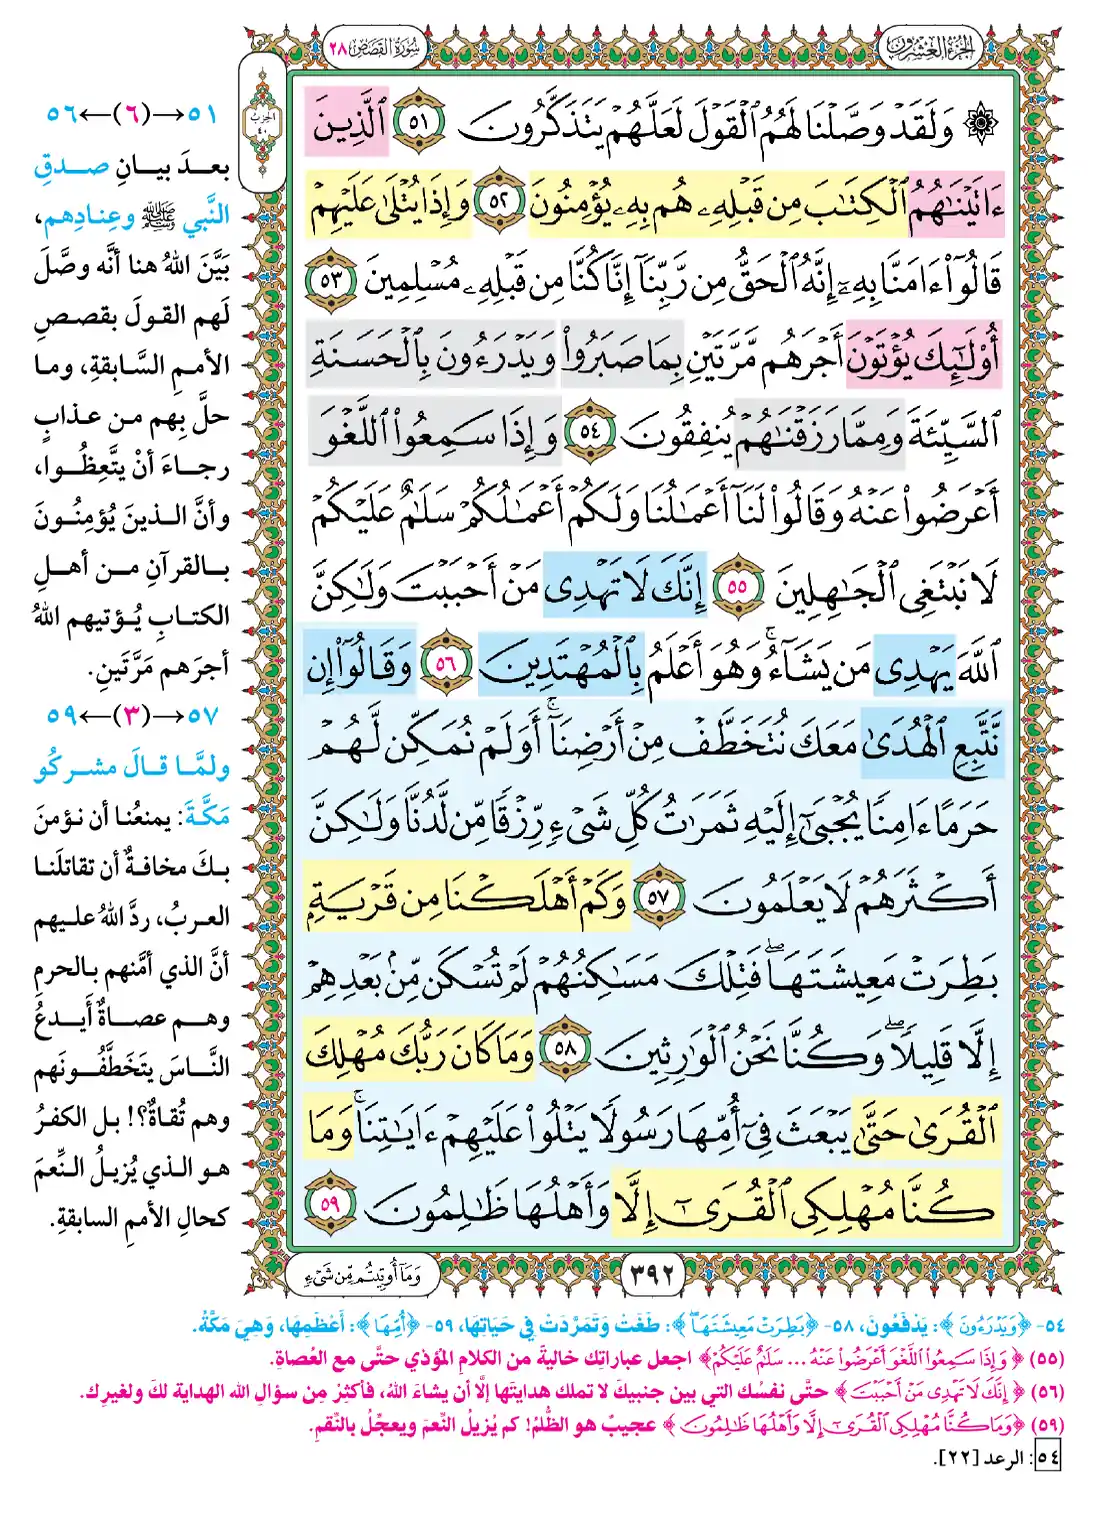 الجزء العشرون
سورة القصص ٢٨
الحزب
٤٠
۞ وَلَقَدْ وَصَّلْنَا لَهُمُ ٱلْقَوْلَ لَعَلَّهُمْ يَتَذَكَّرُونَ ٥١ ٱلَّذِينَ
ءَاتَيْنَٰهُمُ ٱلْكِتَٰبَ مِن قَبْلِهِۦ هُم بِهِۦ يُؤْمِنُونَ ٥٢ وَإِذَا يُتْلَىٰ عَلَيْهِمْ
قَالُوٓا۟ ءَامَنَّا بِهِۦٓ إِنَّهُ ٱلْحَقُّ مِن رَّبِّنَآ إِنَّا كُنَّا مِن قَبْلِهِۦ مُسْلِمِينَ ٥٣
أُو۟لَٰٓئِكَ يُؤْتَوْنَ أَجْرَهُم مَّرَّتَيْنِ بِمَا صَبَرُوا۟ وَيَدْرَءُونَ بِٱلْحَسَنَةِ
ٱلسَّيِّئَةَ وَمِمَّا رَزَقْنَٰهُمْ يُنفِقُونَ ٥٤ وَإِذَا سَمِعُوا۟ ٱللَّغْوَ
أَعْرَضُوا۟ عَنْهُ وَقَالُوا۟ لَنَآ أَعْمَٰلُنَا وَلَكُمْ أَعْمَٰلُكُمْ سَلَٰمٌ عَلَيْكُمْ
لَا نَبْتَغِى ٱلْجَٰهِلِينَ ٥٥ إِنَّكَ لَا تَهْدِى مَنْ أَحْبَبْتَ وَلَٰكِنَّ
ٱللَّهَ يَهْدِى مَن يَشَآءُ ۚ وَهُوَ أَعْلَمُ بِٱلْمُهْتَدِينَ ٥٦ وَقَالُوٓا۟ إِن
نَّتَّبِعِ ٱلْهُدَىٰ مَعَكَ نُتَخَطَّفْ مِنْ أَرْضِنَآ ۚ أَوَلَمْ نُمَكِّن لَّهُمْ
حَرَمًا ءَامِنًا يُجْبَىٰٓ إِلَيْهِ ثَمَرَٰتُ كُلِّ شَىْءٍ رِّزْقًا مِّن لَّدُنَّا وَلَٰكِنَّ
أَكْثَرَهُمْ لَا يَعْلَمُونَ ٥٧ وَكَمْ أَهْلَكْنَا مِن قَرْيَةٍۭ
بَطِرَتْ مَعِيشَتَهَا ۖ فَتِلْكَ مَسَٰكِنُهُمْ لَمْ تُسْكَن مِّنۢ بَعْدِهِمْ
إِلَّا قَلِيلًا ۖ وَكُنَّا نَحْنُ ٱلْوَٰرِثِينَ ٥٨ وَمَا كَانَ رَبُّكَ مُهْلِكَ
ٱلْقُرَىٰ حَتَّىٰ يَبْعَثَ فِىٓ أُمِّهَا رَسُولًا يَتْلُوا۟ عَلَيْهِمْ ءَايَٰتِنَا ۚ وَمَا
كُنَّا مُهْلِكِى ٱلْقُرَىٰٓ إِلَّا وَأَهْلُهَا ظَٰلِمُونَ ٥٩
وَمَآ أُوتِيتُم مِّن شَىْءٍ
٣٩٢
٥١→(٦)←٥٦
بعدَ بيانِ صدقِ
النَّبي ﷺ وعِنادِهم،
بَيَّنَ اللهُ هنا أنَّه وصَّلَ
لَهم القولَ بقصصِ
الأممِ السَّابقةِ، وما
حلَّ بِهم من عذابٍ
رجاءَ أنْ يتَّعِظُوا،
وأنَّ الذينَ يُؤمِنُونَ
بالقرآنِ من أهلِ
الكتابِ يُؤتيهم اللهُ
أجرَهم مَرَّتَينِ.
٥٧→(٣)←٥٩
ولمَّا قالَ مشركُو
مَكَّةَ: يمنعُنا أن نؤمنَ
بكَ مخافةُ أن تقاتلَنا
العربُ، ردَّ اللهُ عليهم
أنَّ الذي أمَّنهم بالحرمِ
وهم عصاةٌ أَيدعُ
النَّاسَ يتَخَطَّفُونَهم
وهم تُقاةٌ؟! بل الكفرُ
هو الذي يُزيلُ النِّعمَ
كحالِ الأممِ السابقةِ.
٥٤- ﴿وَيَدْرَءُونَ﴾: يَدْفَعُونَ، ٥٨- ﴿بَطِرَتْ مَعِيشَتَهَا ۖ﴾: طَغَتْ وَتَمَرَّدَتْ فِي حَيَاتِهَا، ٥٩- ﴿أُمِّهَا﴾: أَعْظَمِهَا، وَهِيَ مَكَّةُ.
(٥٥) ﴿وَإِذَا سَمِعُوا۟ ٱللَّغْوَ أَعْرَضُوا۟ عَنْهُ ... سَلَٰمٌ عَلَيْكُمْ﴾ اجعل عباراتِك خاليةً من الكلامِ المُؤذي حتَّى مع العُصاةِ.
(٥٦) ﴿إِنَّكَ لَا تَهْدِى مَنْ أَحْبَبْتَ﴾ حتَّى نفسُك التي بين جنبيكَ لا تملك هدايتَها إلَّا أن يشاءَ اللهُ، فأكثِرْ مِن سؤالِ الله الهدايةَ لكَ ولغيرِك.
(٥٩) ﴿وَمَا كُنَّا مُهْلِكِى ٱلْقُرَىٰٓ إِلَّا وَأَهْلُهَا ظَٰلِمُونَ﴾ عجيبٌ هو الظُّلمُ! كم يُزيلُ النِّعمَ ويعجِّلُ بالنِّقمِ.
٥٤: الرعد [٢٢].